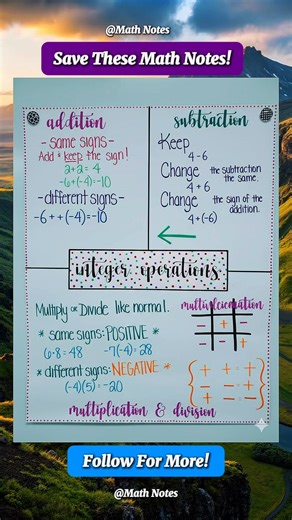 @Math Notes
Save These Math Notes!
addition
- same signs -
Add + keep the sign!
2+2 = 4
-6+(-4)=-10
-different signs-
-6 ++(-4)=-10
subtraction
Keep
4-6
Change the subtraction the same.
4+6
Change the sign of the addition.
4+(-6)
integer operations
Multiply or Divide like normal.
* same signs: POSITIVE *
6·8=48 -7(-4)=28
* different signs: NEGATIVE *
(-4)(5)=-20
+
- + -
-
+ + +
+ - -
- - +
multiplication & division
Follow For More!
@Math Notes